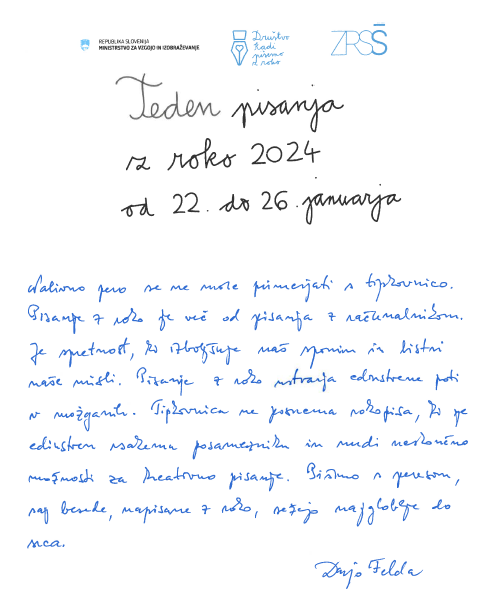 REPUBLIKA SLOVENIJA
MINISTRSTVO ZA VZGOJO IN IZOBRAŽEVANJE
Društvo
Radi
pišemo
z roko
ZRSŠ
Teden pisanja
z roko 2024
od 22. do 26. januarja
Nalivno pero se ne more primerjati s tipkovnico.
Pisanje z roko je več od pisanja z računalnikom.
Je spretnost, ki izboljšuje naš spomin in bistri
naše misli. Pisanje z roko ustvarja edinstvene poti
v možganih. Tipkovnica ne posnema rokopisa, ki je
edinstven vsakemu posamezniku in nudi neskončno
možnosti za kreativno pisanje. Pišimo s peresom,
saj besede, napisane z roko, sežejo najgloblje do
srca.
Darjo Felda